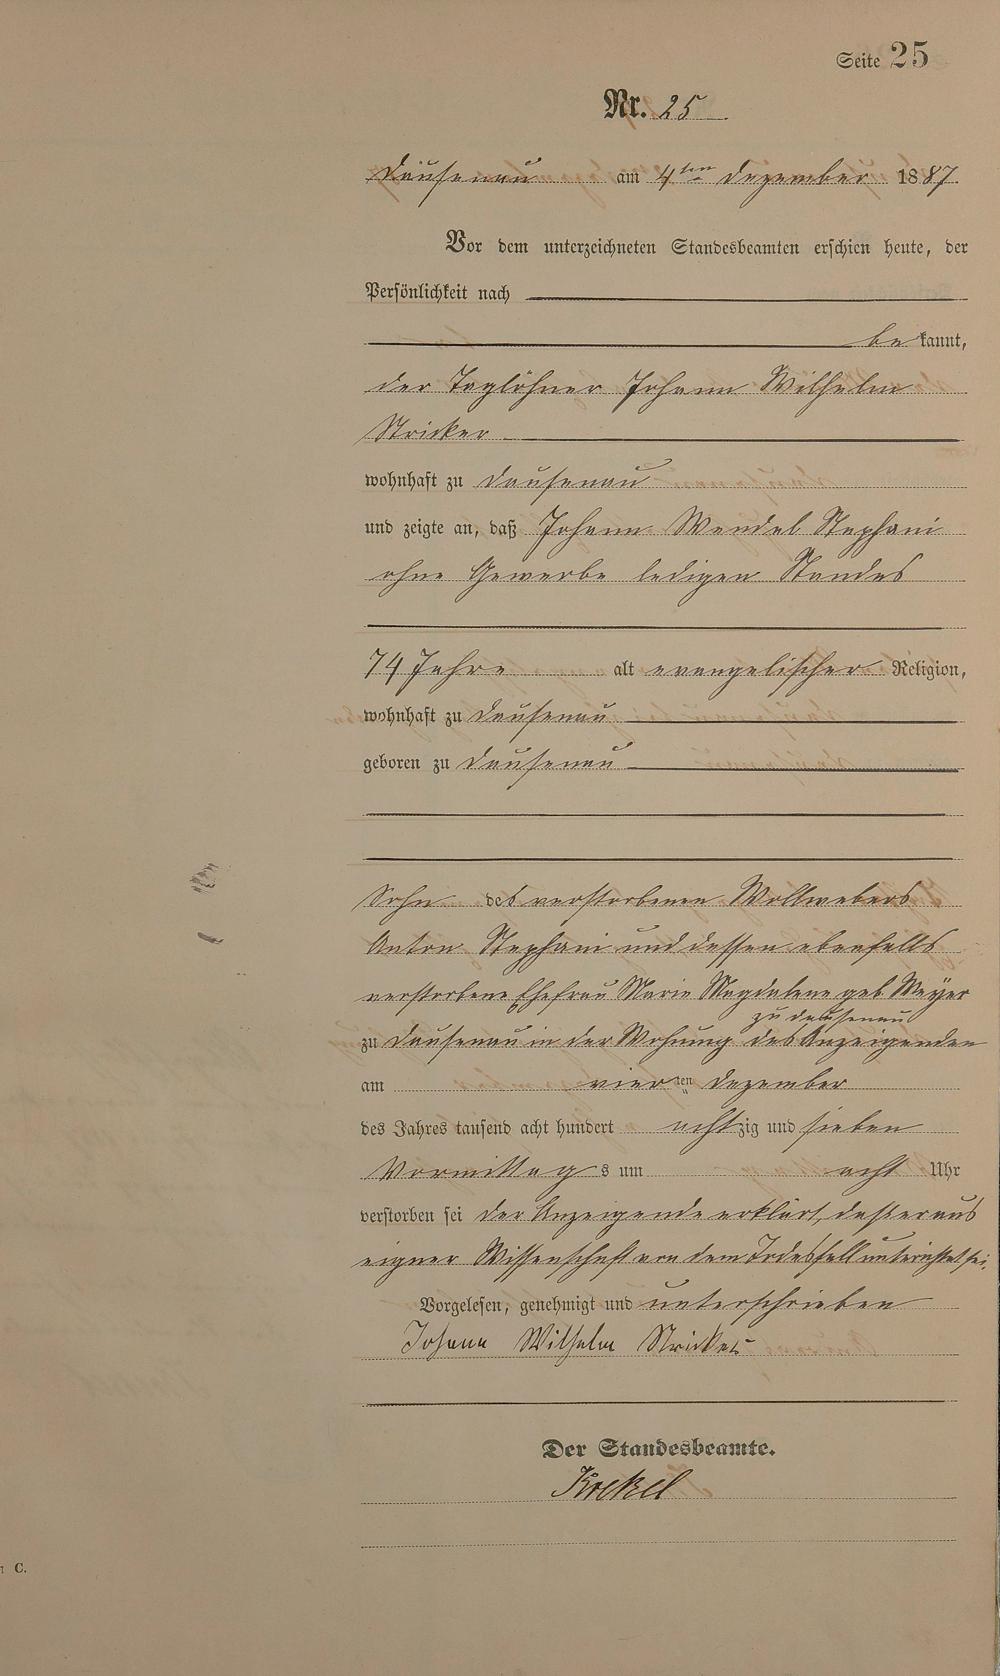 Seite 25
Nr. 25
Dausenau am 4ten Dezember 1887.
Vor dem unterzeichneten Standesbeamten erschien heute, der
Persönlichkeit nach
bekannt,
der Taglöhner Johann Wilhelm
Stricker
wohnhaft zu Dausenau
und zeigte an, daß Johann Wendel Stephani
ohne Gewerbe ledigen Standes
74 Jahre alt evangelischer Religion,
wohnhaft zu Dausenau
geboren zu Dausenau
Sohn des verstorbenen Wollwebers
Anton Stephani und dessen ebenfalls
verstorbene Ehefrau Marie Magdalene geb Meyer
zu Dausenau
zu Dausenau in der Wohnung des Anzeigenden
am vierten Dezember
des Jahres tausend acht hundert achtzig und sieben
Vormittags um acht Uhr
verstorben sei der Anzeigende erklärt, daß er aus
eigner Wissenschaft von dem Todesfall unterrichtet sei.
Vorgelesen, genehmigt und unterschrieben
Johann Wilhelm Stricker
Der Standesbeamte.
Krekel
C.